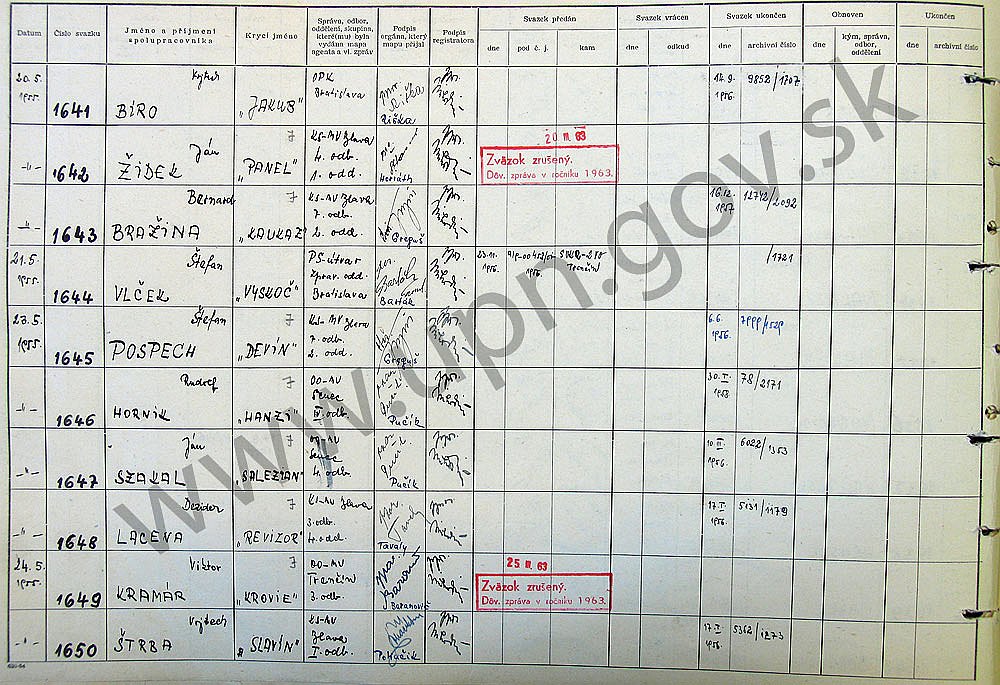 Datum
Číslo svazku
Jméno a příjmení
spolupracovníka
Krycí jméno
Správa, odbor,
oddělení, skupina,
které(mu) byla
vydána mapa
agenta a vl. zpráv
Podpis
orgánu, který
mapu přijal
Podpis
registratora
Svazek předán
dne
pod č. j.
kam
Svazek vrácen
dne
odkud
Svazek ukončen
dne
archivní číslo
Obnoven
dne
kým, správa,
odbor,
oddělení
Ukončen
dne
archivní číslo
20.5.
1955.
1641
BÍRO
"JAKUB"
Bratislava
Riška
14.9.
1956.
9852/1707
-"-
1642
Ján
ŽIDEK
"PANEL"
7
KS-MV Jlava
4. odb.
1. odd.
Horváth
20 III. 63
Zväzok zrušený.
Dôv. zpráva v ročníku 1963.
-"-
1643
Bernard
BRAŽINA
"KAUKAZ"
7
7. odb.
2. odd.
Greguš
16.12.
1957.
12742/2092
21.5.
1955.
1644
Štefan
VLČEK
"VYSKOČ"
PS-útvar
Zprav. odd.
Bratislava
Barták
23.11.
1956.
1956.
Trenčín
/1721
23.5.
1955.
1645
Štefan
POSPECH
"DEVÍN"
7
7. odb.
2. odd.
Greguš
6.6.
1956.
-"-
1646
Rudolf
HORNÍK
"HANZI"
7
OO-MV
Senec
IV. odb.
Pučík
1958.
78/2171
-"-
1647
Ján
SZAKAL
"SALEZIAN"
7
OO-MV
Senec
4. odb.
Pučík
1956.
6022/1353
-"-
1648
Dezider
LACENA
"REVIZOR"
7
3. odb.
4. odd.
Tavaly
17.I.
1956.
5131/1179
24.5.
1955.
1649
Viktor
KRAMÁR
"KROVIE"
7
OO-MV
Trenčín
3. odb.
Baranovič
25 III. 63
Zväzok zrušený.
Dôv. zpráva v ročníku 1963.
-"-
1650
Vojtech
ŠTRBA
"SLAVÍN"
7
KS-MV
Jlava
I. odb.
Potúčik
17.I.
1956.
5362/1273
www.upn.gov.sk